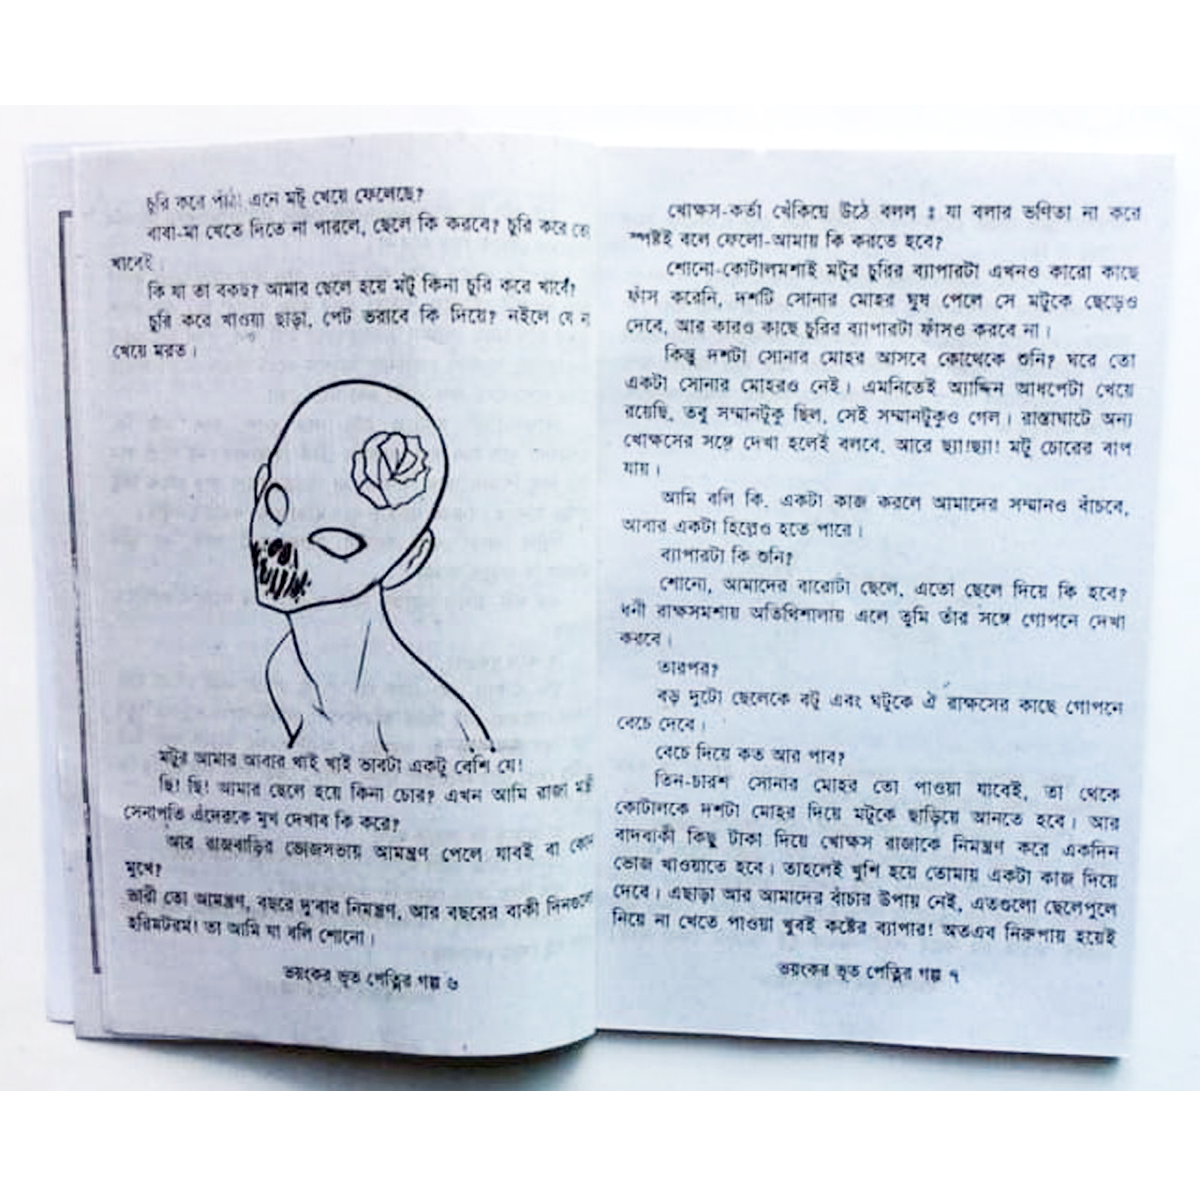 চুরি করে পাঁঠা এনে মটু খেয়ে ফেলেছে?
বাবা-মা খেতে দিতে না পারলে, ছেলে কি করবে? চুরি করে তো
খাবেই।
কি যা তা বকছ? আমার ছেলে হয়ে মটু কিনা চুরি করে খাবে?
চুরি করে খাওয়া ছাড়া, পেট ভরাবে কি দিয়ে? নইলে যে না
খেয়ে মরত।
মটুর আমার আবার খাই খাই ভাবটা একটু বেশি যে!
ছি! ছি! আমার ছেলে হয়ে কিনা চোর? এখন আমি রাজা মন্ত্রী
সেনাপতি এঁদেরকে মুখ দেখাব কি করে?
আর রাজবাড়ির ভোজসভায় আমন্ত্রণ পেলে যাবই বা কোন
মুখে?
ভারী তো আমন্ত্রণ, বছরে দু'বার নিমন্ত্রণ, আর বছরের বাকী দিনগুলো
হরিমটরম! তা আমি যা বলি শোনো।
ভয়ংকর ভূত পেত্নির গল্প ৬
খোক্ষস-কর্তা খেঁকিয়ে উঠে বলল ঃ যা বলার ভণিতা না করে
স্পষ্টই বলে ফেলো-আমায় কি করতে হবে?
শোনো-কোটালমশাই মটুর চুরির ব্যাপারটা এখনও কারো কাছে
ফাঁস করেনি, দশটি সোনার মোহর ঘুষ পেলে সে মটুকে ছেড়েও
দেবে, আর কারও কাছে চুরির ব্যাপারটা ফাঁসও করবে না।
কিন্তু দশটা সোনার মোহর আসবে কোথেকে শুনি? ঘরে তো
একটা সোনার মোহরও নেই। এমনিতেই অ্যাদ্দিন আধপেটা খেয়ে
রয়েছি, তবু সম্মানটুকু ছিল, সেই সম্মানটুকুও গেল। রাস্তাঘাটে অন্য
খোক্ষসের সঙ্গে দেখা হলেই বলবে, আরে ছ্যা!ছ্যা! মটু চোরের বাপ
যায়।
আমি বলি কি. একটা কাজ করলে আমাদের সম্মানও বাঁচবে,
আবার একটা হিল্লেও হতে পারে।
ব্যাপারটা কি শুনি?
শোনো, আমাদের বারোটা ছেলে, এতো ছেলে দিয়ে কি হবে?
ধনী রাক্ষসমশায় অতিথিশালায় এলে তুমি তাঁর সঙ্গে গোপনে দেখা
করবে।
তারপর?
বড় দুটো ছেলেকে বটু এবং ঘটুকে ঐ রাক্ষসের কাছে গোপনে
বেচে দেবে।
বেচে দিয়ে কত আর পাব?
তিন-চারশ সোনার মোহর তো পাওয়া যাবেই, তা থেকে
কোটালকে দশটা মোহর দিয়ে মটুকে ছাড়িয়ে আনতে হবে। আর
বাদবাকী কিছু টাকা দিয়ে খোক্ষস রাজাকে নিমন্ত্রণ করে একদিন
ভোজ খাওয়াতে হবে। তাহলেই খুশি হয়ে তোমায় একটা কাজ দিয়ে
দেবে। এছাড়া আর আমাদের বাঁচার উপায় নেই, এতগুলো ছেলেপুলে
নিয়ে না খেতে পাওয়া খুবই কষ্টের ব্যাপার! অতএব নিরুপায় হয়েই
ভয়ংকর ভূত পেত্নির গল্প ৭